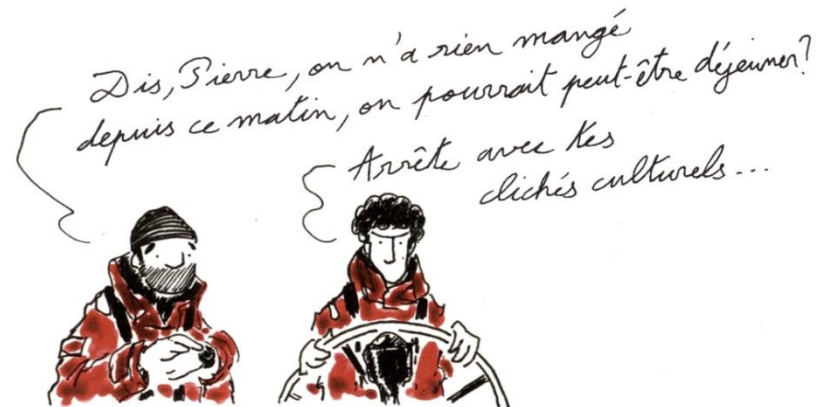 Dis, Pierre, on n'a rien mangé
depuis ce matin, on pourrait peut-être déjeuner?
Arrête avec tes
clichés culturels...